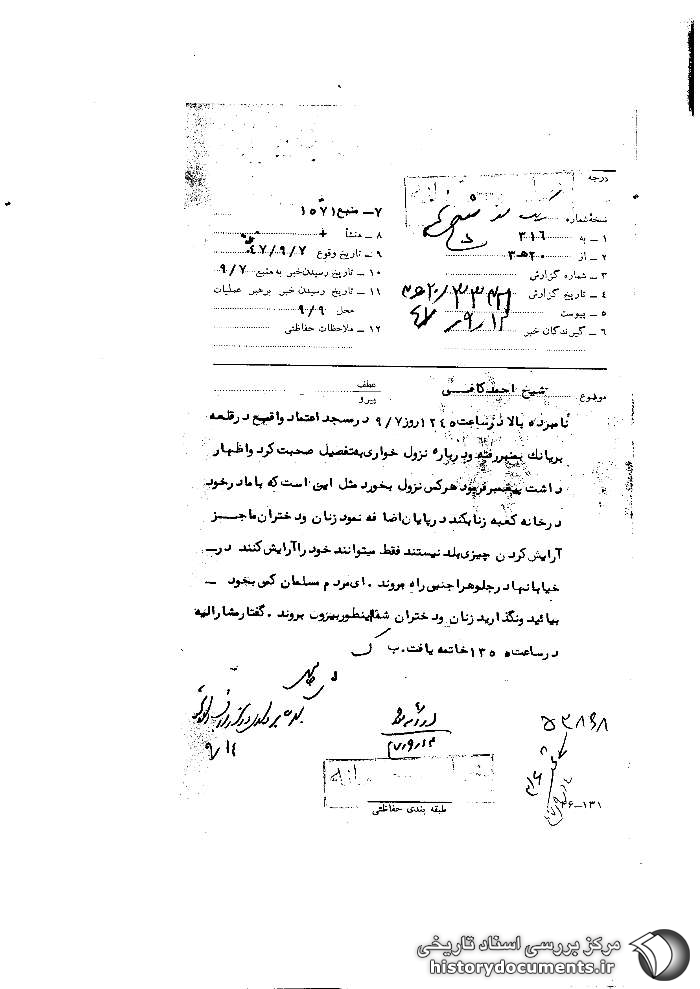 درجه
نسخه شماره
۱ ـ به ۳۱۶
۲ ـ از ۲۰ ه‍ ۳
۳ ـ شماره گزارش
۴ ـ تاریخ گزارش
۵ ـ پیوست
۶ ـ گیرندگان خبر
۷ ـ منبع ۱۵۷۱
۸ ـ منشأ +
۹ ـ تاریخ وقوع ۴۷/۹/۷
۱۰ ـ تاریخ رسیدن خبر به منبع ۹/۷
۱۱ ـ تاریخ رسیدن خبر برهبر عملیات
محل ۹/۹
۱۲ ـ ملاحظات حفاظتی
موضوع شیخ احمد کافی
عطف
پیرو
نامبرده بالا در ساعت ۱۲۴۵ روز ۹/۷ در مسجد اعتماد واقع در قلعه
بریانک بمنبر رفته و درباره نزول خواری به تفصیل صحبت کرد و اظهار
داشت پیغمبر فرمود هرکس نزول بخورد مثل این است که با مادر خود
در خانه کعبه زنا بکند در پایان اضافه نمود زنان و دختران ما جز
آرایش کردن چیزی بلد نیستند فقط میتوانند خود را آرایش کنند در ـ
خیابانها در جلو هر اجنبی راه بروند . ای مردم مسلمان کمی بخود ـ
بیائید و نگذارید زنان و دختران شما اینطور بیرون بروند . گفتار مشارالیه
در ساعت ۱۳۵۰ خاتمه یافت. ب ک
۹/۱۴
طبقه بندی حفاظتی
مرکز بررسی اسناد تاریخی
historydocuments.ir